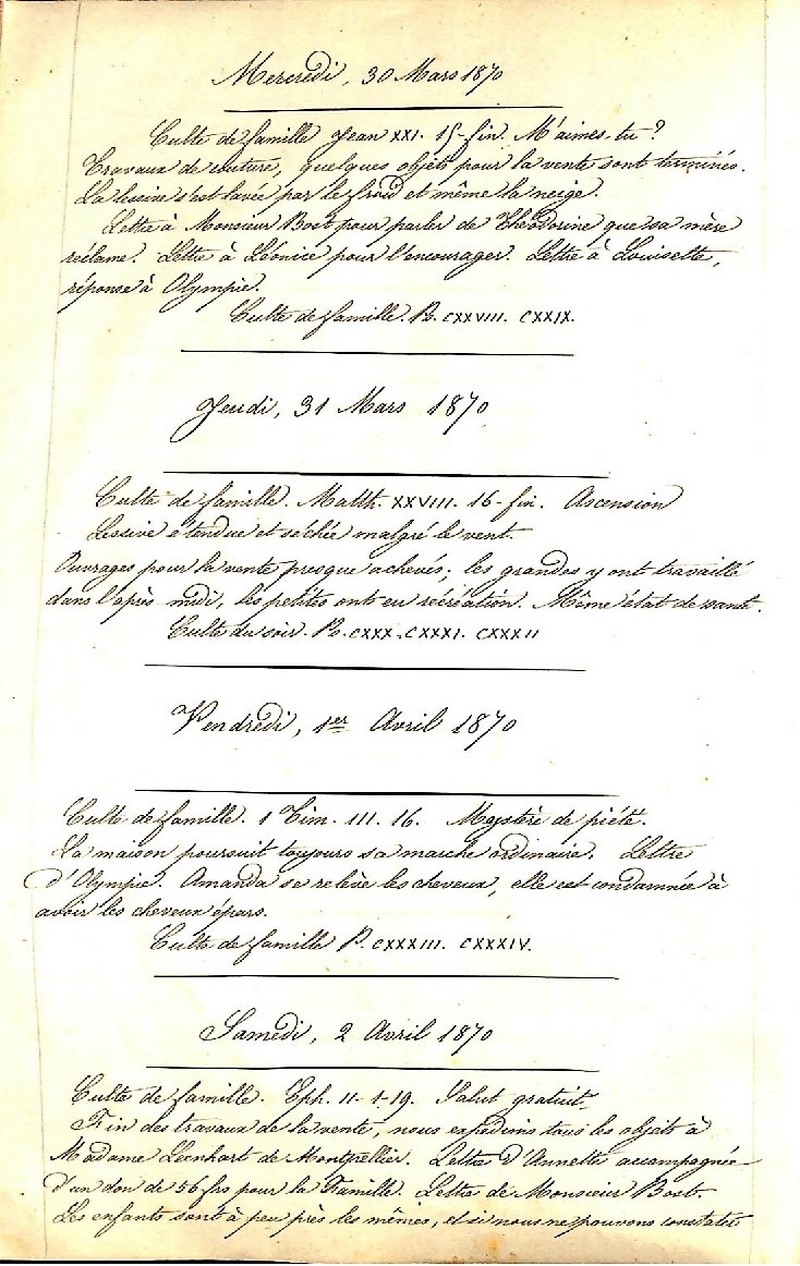 Mercredi, 30 Mars 1870
Culte de famille Jean XXI. 15-fin. M'aimes-tu?
Travaux de couture, quelques objets pour la vente sont terminés.
La lessive s'est lavée par le froid et même la neige.
Lettre à Monsieur Bost pour parler de Théodorine que sa mère
réclame. Lettre à Léonice pour l'encourager. Lettre à Louisette,
réponse à Olympie.
Culte de famille. Ps. CXXVIII. CXXIX.
Jeudi, 31 Mars 1870
Culte de famille. Matth. XXVIII. 16-fin. Ascension
Lessive étendue et séchée malgré le vent.
Ouvrages pour la vente presque achevés; les grandes y ont travaillé
dans l'après midi, les petites ont eu récréation. Même état de santé.
Culte du soir. Ps. CXXX. CXXXI. CXXXII
Vendredi, 1er Avril 1870
Culte de famille. 1 Tim. III. 16. Mystère de piété.
La maison poursuit toujours sa marche ordinaire. Lettre
d'Olympie. Amanda se relève les cheveux, elle est condamnée à
avoir les cheveux épars.
Culte de famille P. CXXXIII. CXXXIV.
Samedi, 2 Avril 1870
Culte de famille. Eph. II-1-19. Salut gratuit.
Fin des travaux de la vente, nous expédions tous les objets à
Madame Léenhart de Montpellier. Lettre d'Annette accompagnée
d'un don de 56 frs pour la Famille. Lettre de Monsieur Bost.
Les enfants sont à peu près les mêmes, et si nous ne pouvons constater